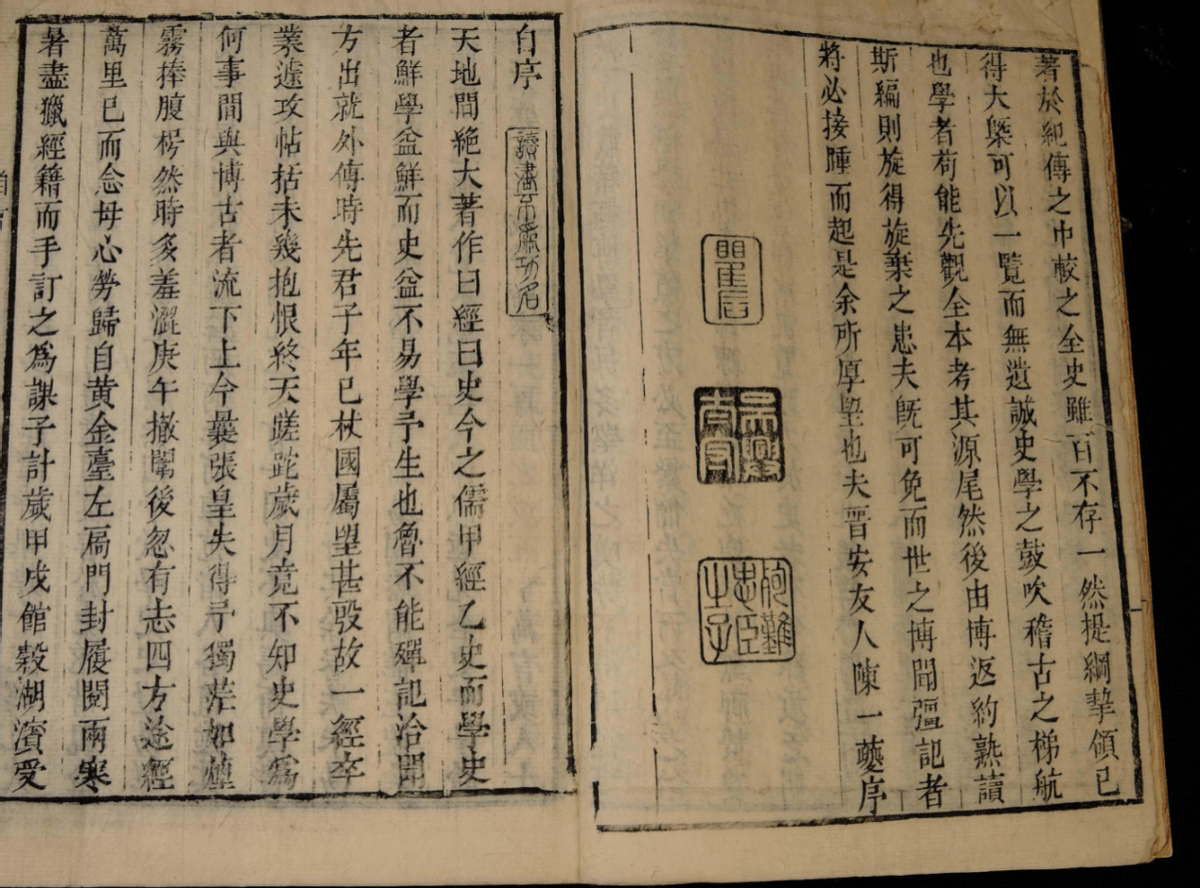 著於紀傳之中較之全史雖百不存一然提綱挈領已
得大槩可以一覽而無遺誠史學之鼓吹稽古之梯航
也學者苟能先觀全本考其源尾然後由博返約熟讀
斯編則旋得旋棄之患夫旣可免而世之博聞彊記者
將必接踵而起是余所厚望也夫晋安友人陳一夔序
自序
讀書不爲功名
天地間絶大著作曰經曰史今之儒甲經乙史而學史
者鮮學益鮮而史益不易學予生也魯不能殫記洽聞
方出就外傅時先君子年已杖國屬望甚殷故一經卒
業遽攻帖括未幾抱恨終天蹉跎歲月竟不知史學爲
何事間與博古者流下上今曩張皇失得予獨茫如煙
霧捧腹枵然時多羞澀庚午撤闈後忽有志四方途經
萬里已而念母心勞歸自黄金臺左扃門封履閱兩寒
暑盡獵經籍而手訂之爲課子計歲甲戌館穀湖濱受